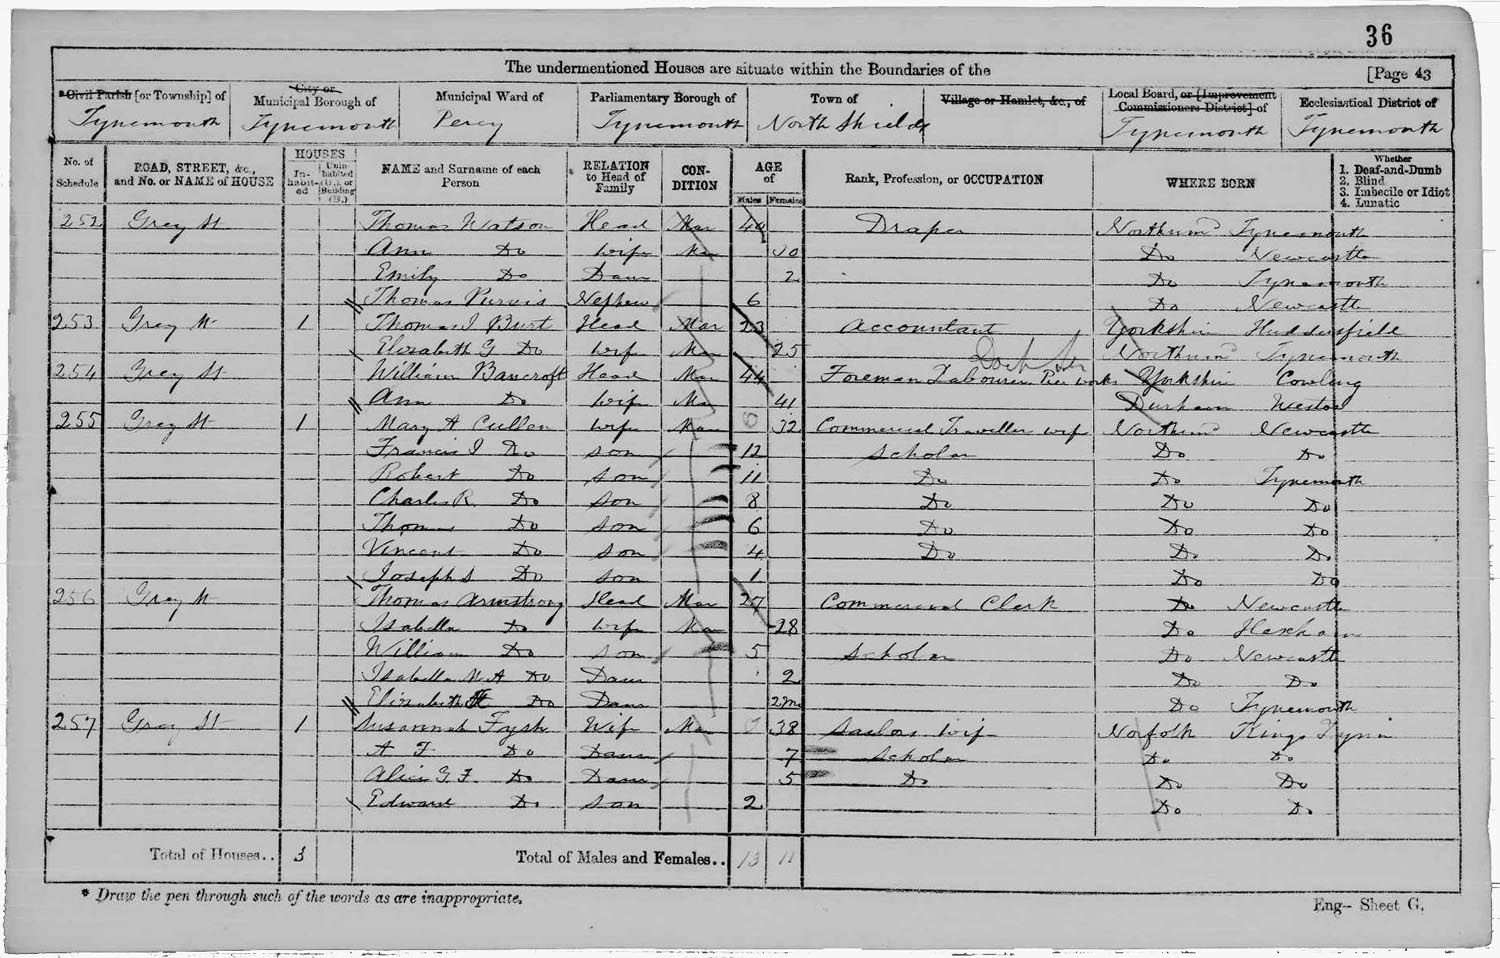 36
The undermentioned Houses are situate within the Boundaries of the
[Page 43
*Civil Parish [or Township] of
City or Municipal Borough of
Municipal Ward of
Parliamentary Borough of
Town of
Village or Hamlet, &c., of
Local Board, or [Improvement Commissioners District] of
Ecclesiastical District of
Tynemouth Tynemouth Percy Tynemouth North Shields Tynemouth Tynemouth
No. of Schedule
ROAD, STREET, &c., and No. or NAME of HOUSE
HOUSES
In-habit-ed
Unin-habited (U.), or Building (B.)
NAME and Surname of each Person
RELATION to Head of Family
CON-DITION
AGE of
Males Females
Rank, Profession, or OCCUPATION
WHERE BORN
Whether
1. Deaf-and-Dumb
2. Blind
3. Imbecile or Idiot
4. Lunatic
252 Grey St Thomas Watson Head Mar 40 Draper Northumd Tynemouth
Ann Do Wife Mar 30 Do Newcastle
Emily Do Daur 2 Do Tynemouth
Thomas Purvis Nephew 6 Do Newcastle
253 Grey St 1 Thomas J Burt Head Mar 23 Accountant Yorkshire Huddersfield
Elizabeth G Do Wife Mar 25 Northumd Tynemouth
254 Grey St William Bancroft Head Mar 44 Foreman Labourer Pier works Yorkshire Cowling
Ann Do Wife Mar 41 Durham Westoe
255 Grey St 1 Mary A Cullen Wife Mar 32 Commercial Traveller wife Northumd Newcastle
Francis J Do Son 12 Scholar Do Do
Robert Do Son 11 Do Do Tynemouth
Charles R. Do Son 8 Do Do Do
Thomas Do Son 6 Do Do Do
Vincent Do Son 4 Do Do Do
Joseph S Do Son 1 Do Do
256 Grey St Thomas Armstrong Head Mar 27 Commercial Clerk Do Newcastle
Isabella Do Wife Mar 28 Do Hexham
William Do Son 5 Scholar Do Newcastle
Isabella M A Do Daur 2 Do Do
Elizabeth H Do Daur 2m Do Tynemouth
257 Grey St 1 Susannah Fysh Wife Mar 38 Sailors Wife Norfolk Kings Lynn
A F Do Daur 7 Scholar Do Do
Alice G F. Do Daur 5 Do Do Do
Edward Do Son 2 Do Do
Total of Houses.. 3 Total of Males and Females.. 13 11
* Draw the pen through such of the words as are inappropriate.
Eng- Sheet G.